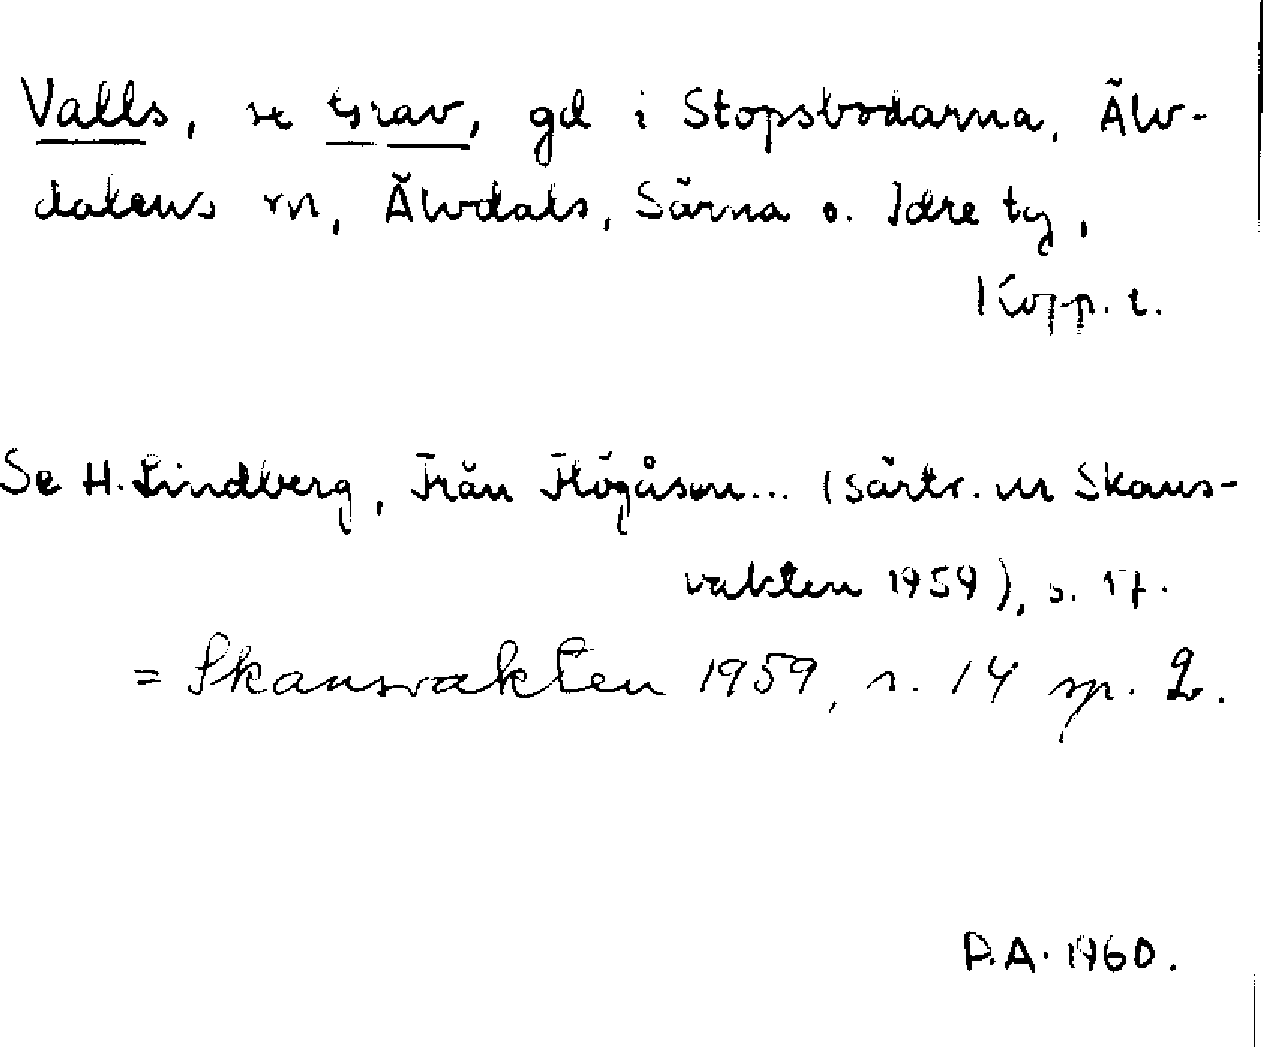 Valls, se Grav, gd i Stopsbodarna, Älv-
dalens sn, Älvdals, Särna o. Idre tg,
Kopp. l.
Se H. Lindberg, Från Högåsen... (särtr. ur Skans-
vakten 1959), s. 17.
= Skansvakten 1959, s. 14 sp. 2.
P.A. 1960.